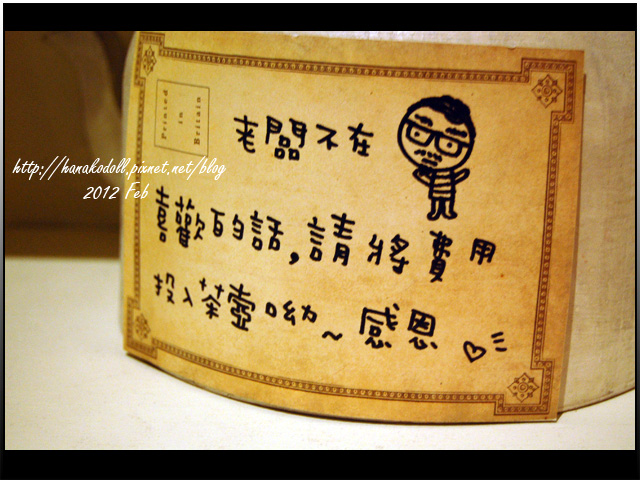 Printed
in
Britain
老闆不在
http://hanakodoll.pixnet.net/blog
2012 Feb
喜歡的話,請將費用
投入茶壺呦~感恩♡